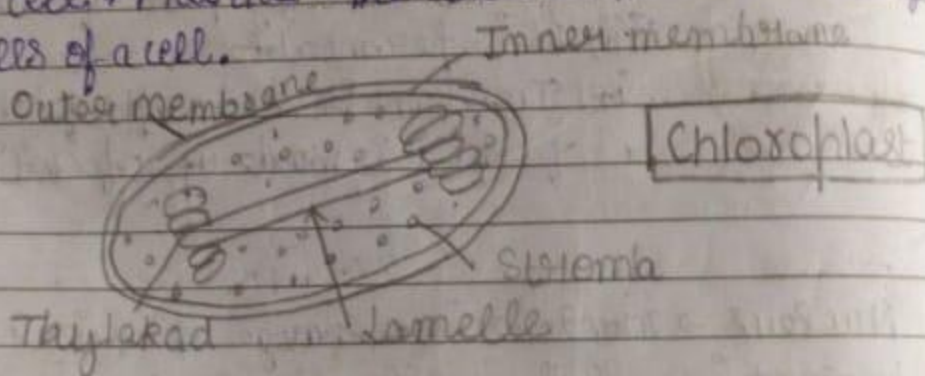 of a cell.
Inner membrane
Outer membrane
Chloroplast
Stroma
Thylakad
Lamelle